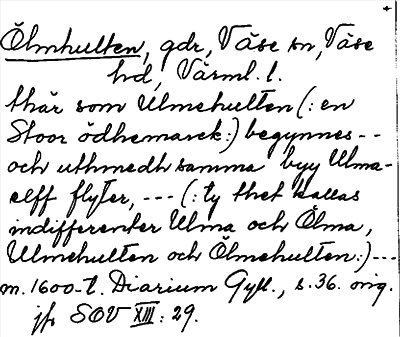 Ölmhulten, gdr, Väse sn, Väse
hd, Värml. l.
thär som Ulmehulten (: en
Stoor ödhemarck:) begynnes --
och uthmedh samma byy Ulma-
elff flyter, --- (: ty thet kallas
indifferenter Ulma och Ölma,
Ulmehulten och Ölmehulten:) ---
m. 1600-t. Diarium Gyll., s. 36. orig.
jfr SOV XIII: 29.